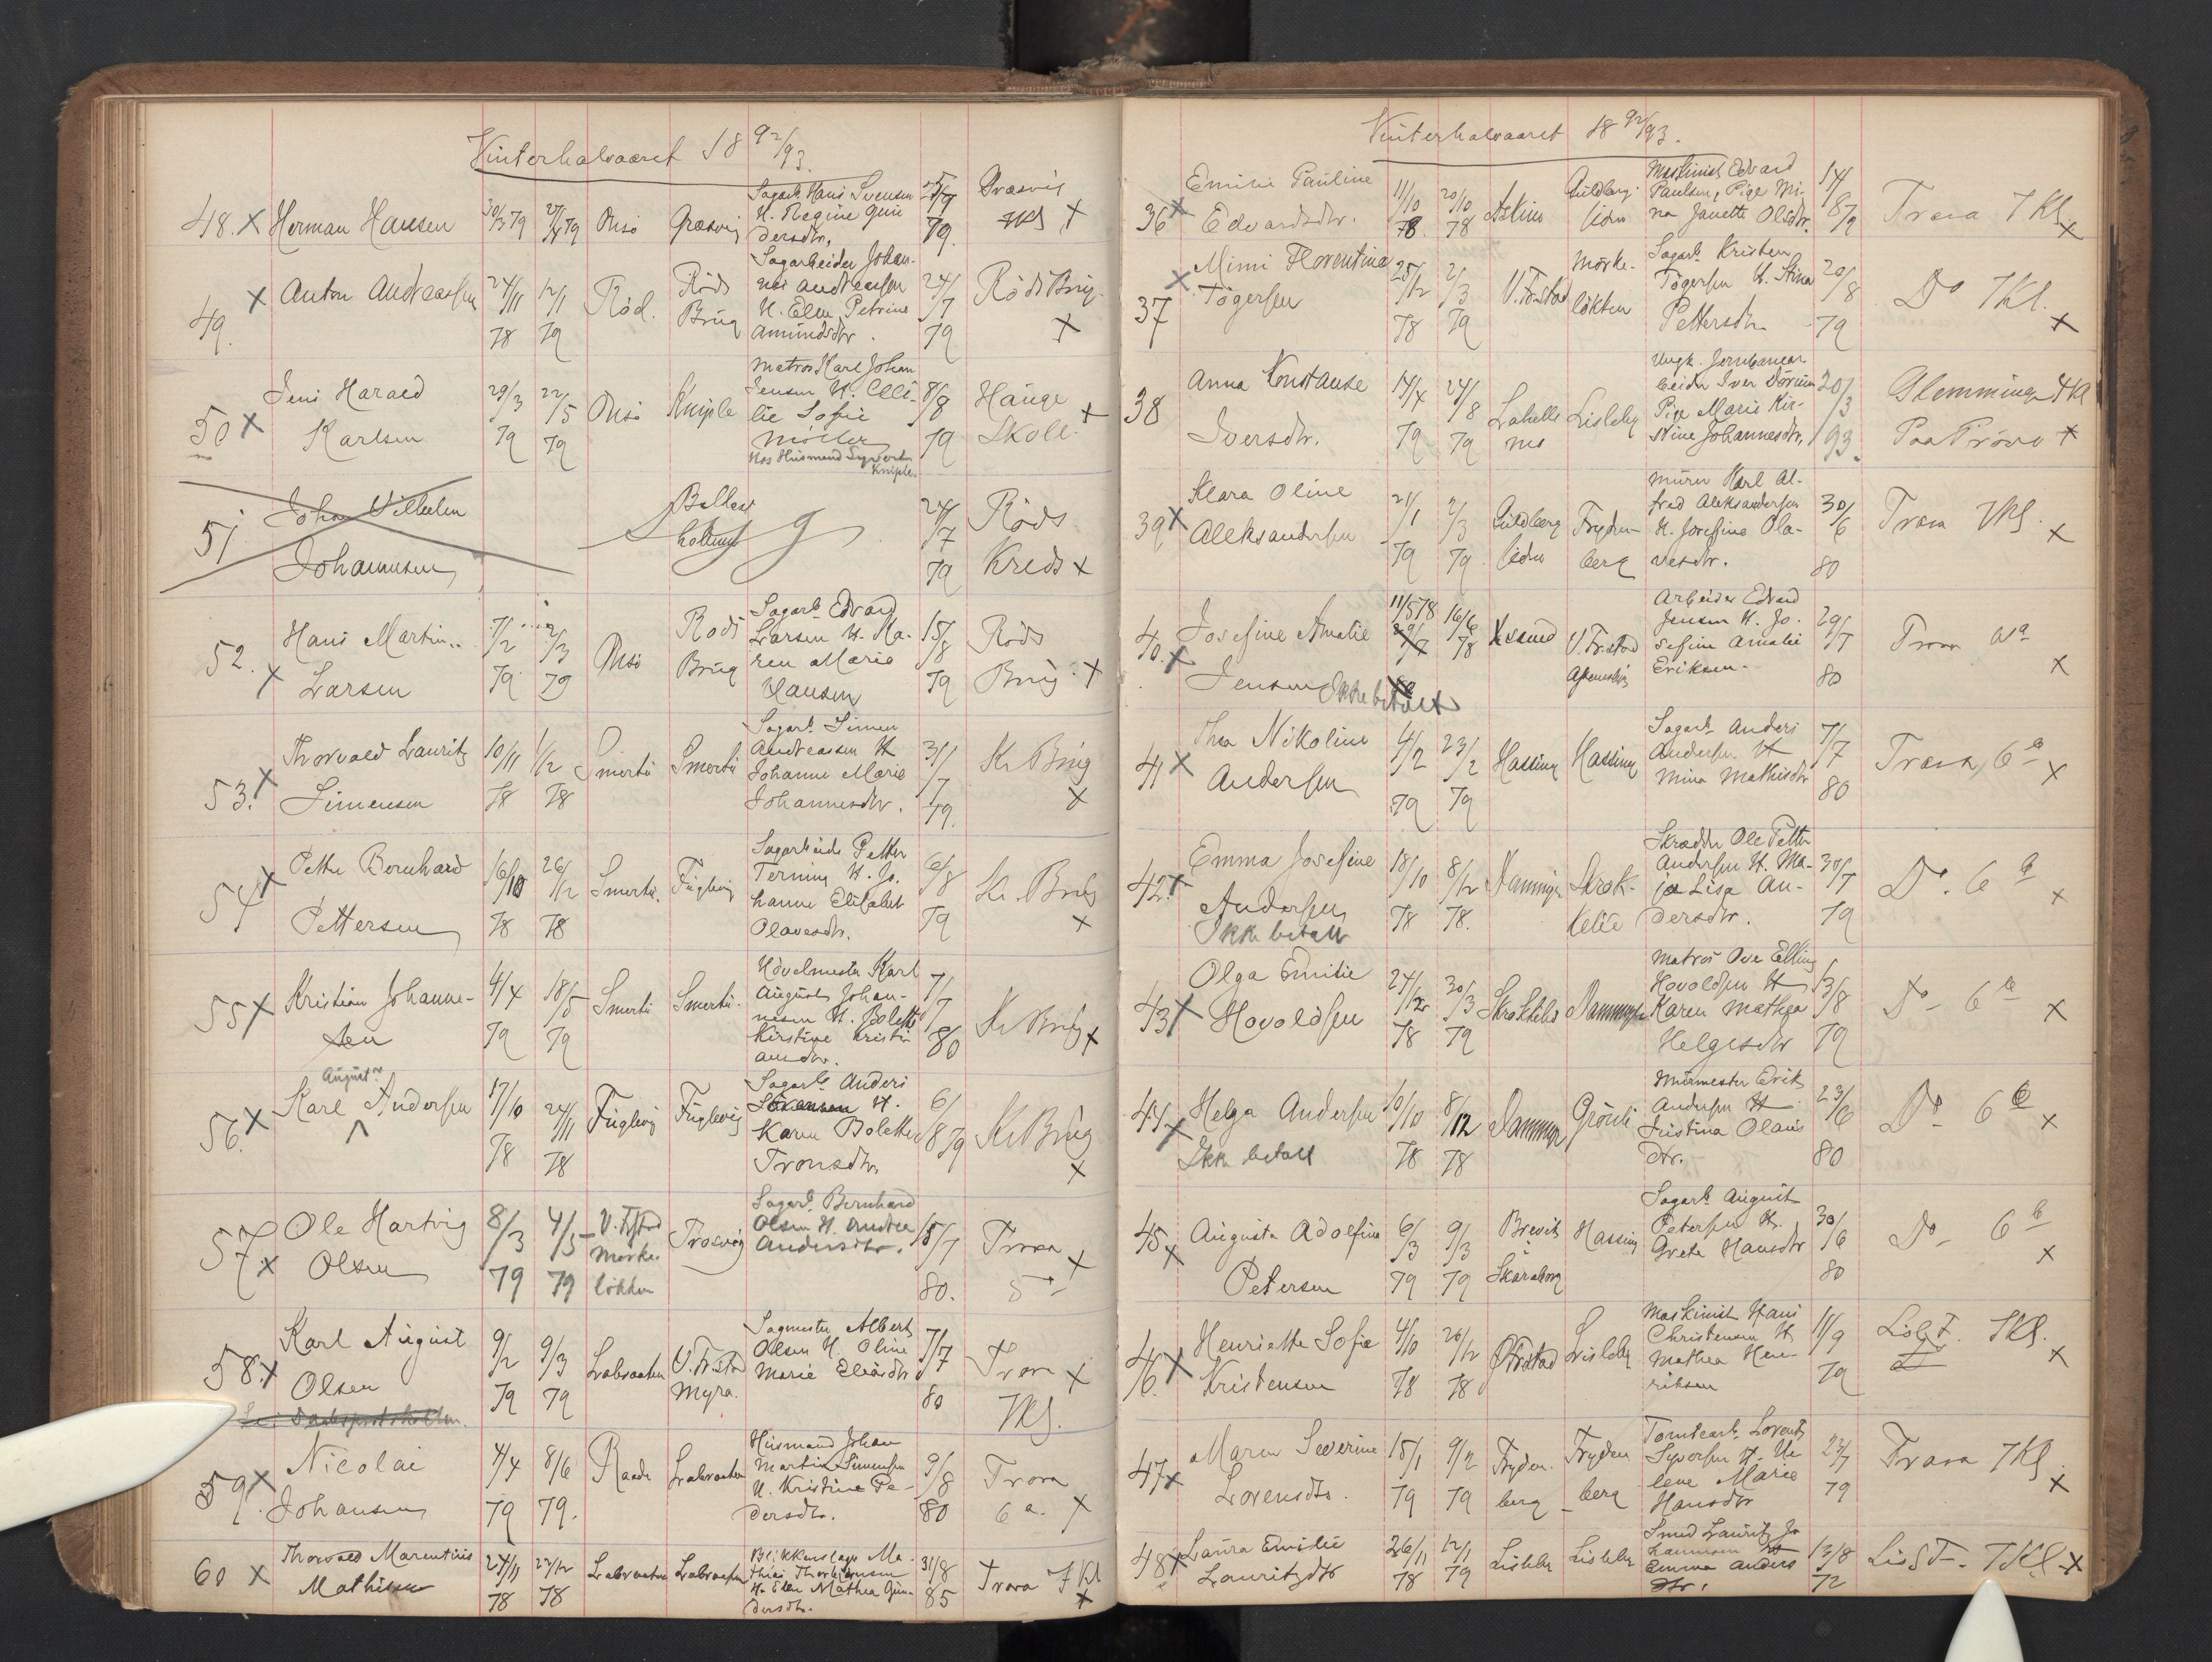 Vinterhalvaaret 18 92/93.
48. x Herman Hansen 30/3 79 27/4 79 Onsö Græsvig Sagarb. Hans Svensen H. Regine Gundersdtr. 79. Græsvig x
49. x Anton Andreassen 24/11 78 12/1 79 Röd. Röds Brug Sagarbeider Johannes Andreassen H. Elen Petrine Amundsdtr. 24/7 79 Röds Brug. x
50 x Jens Harald Karlsen 29/3 79 22/5 79 Onsö Kniple Matros Karl Johan Jensen H. Ollie Sofie Möller Hos Husmand Syvert Kniple. 8/8 79 Hauge Skole. x
51 Johan Vilhelm Johannesen 24/7 79 Röds Kreds x
52. x Hans Martin Larsen 7/2 79 2/3 79 Onsö Rods Brug Sagarb. Edvard Larsen H. Karen Marie Hansen 15/8 79 Röds Brug. x
53. x Thorvald Lauritz Simensen 10/11 78 1/12 78 Smertu Smertu Sagarb. Simen Andreassen H. Johanne Marie Johannesdtr. 31/7 79. Kr Brug x
54 x Petter Bernhard Pettersen 16/10 78 26/12 78 Smertu. Fuglevig Sagarbeide Petter Terning H. Johanne Elisabet Olavesdtr. 6/8 79 Kr. Brug x
55 x Kristian Johannesen 4/4 79 18/5 79 Smertu Smertu. Hövelmester Karl August Johannesen H. Bolette Kirstine Kristiansdtr. 7/7 80 Kr Brug x
56. x Karl August Andersen 17/10 78 24/11 78 Fuglevig Fuglevig Sagarb. Anders H. Karen Bolette Tronsdtr. 6/8 79 Kr Brug x
57. x Ole Hartvig Olsen 8/3 79 4/5 79 V. Fr.stad Mørkeløkken Trosvig Sagarb. Bernhard Olsen H. Andrea Andersdtr. 15/7 80. Trara x
58. x Karl August Olsen 9/2 79 9/3 79 Labraaten V. Fr.stad Myra. Sagmester Albert Olsen H. Oline Marie Eliasdtr 7/7 80 Trara x 7Kl.
59. x Nicolai Johansen 4/4 79 8/6 79. Raade Labraaten Husmand Johan Martin Simensen H. Kristine Pedersdtr. 9/8 80 Trara 6 a. x
60 x Thorvald Marentius Mathisen 24/11 78 22/12 78 Labraaten Labraaten Blikkenslager Mathias Thorbjørnsen H. Elen Mathea Gundersdtr. 31/8 85 Trara 7 Kl x
Vinterhalvaaret 18 92/93.
36 x Emilie Pauline Edvardsdtr. 11/10 78 20/10 78 Guldbergsiden Maskinist Edvard Paulsen, Pige Mina Janette Olsdtr. 14/8 79 Trara 7 Kl. x
37 x Mimi Florentine Tögersen 25/12 78 2/3 79 V. Fr.stad Mørkeløkken Sagarb. Kristen Tögersen H. Stina Pettersdtr. 20/8 79 Do 7Kl. x
38 Anna Konstanse Iversdtr. 14/4 79 24/8 79 Lisleby Ungk. Iver Pige Marie Kirstine Johannesdtr. 20/3 93. Glemminge 4Kl Paa Pröve x
39 x Klara Oline Aleksandersen 21/1 79 2/3 79. Guldbergsiden Frydenberg Murer Karl Alfred Aleksandersen H. Josefine Olavesdtr. 30/6 80 Trara 7Kl. x
40. x Josefine Amalie Jensen 11/5 78 16/6 78 V. Fr.stad Arbeider Edvard Jensen H. Josefine Amalie Eriksen. 29/7 80 Trara x
Ikke betalt
41 x Thea Nikoline Andersen 4/2 79 23/2 79 Hassing Hassing Sagarb. Anders Andersen H. Mina Mathisdtr 7/7 80 Trara, 6 a x
42. x Emma Josefine Andersen 18/10 78 8/12 78. Dammyr Skrokkelie Skrædder Ole Petter Andersen H. Maja Lisa Andersdtr. 30/7 79 Do. 6 x
Ikke betalt
43 x Olga Emilie Hovoldsen 24/12 78 30/3 79 Dammyr Matros Ove Elling Hovoldsen H. Karen Mathea Helgesdtr 13/8 79 Do 6 x
44 x Helga Andersen 10/10 78 8/12 78 Dammyr Grönli Murmester Erik Andersen H. Justina Olausdtr. 23/6 80 Do 6 x
Ikke betalt
45 x Augusta Adolfine Petersen 6/3 79 9/3 79 Brevik Skaraborg Hassing Sagarb. August Petersen H. Grete Hansdtr 30/6 80 Do 6 b x
46. x Henriette Sofie Kristensen 4/10 78 26/12 78 Lisleby Maskinist Hans Christensen H. Mathea Henriksen 11/9 79 Lisb F. 7Kl. x
47 x Maren Severine Lorensdtr. 15/1 79 9/2 79 Frydenberg Frydenberg Tomtearb. Lorents Syversen H. Helene Marie Hansdtr 23/7 79 Trara 7Kl. x
48 x Laura Emilie Lauritzdtr 26/11 78 12/1 79 Lisleby Lisleby Smed Lauritz Johannesen H. Emma Andersdtr. 13/8 72 7Kl. x